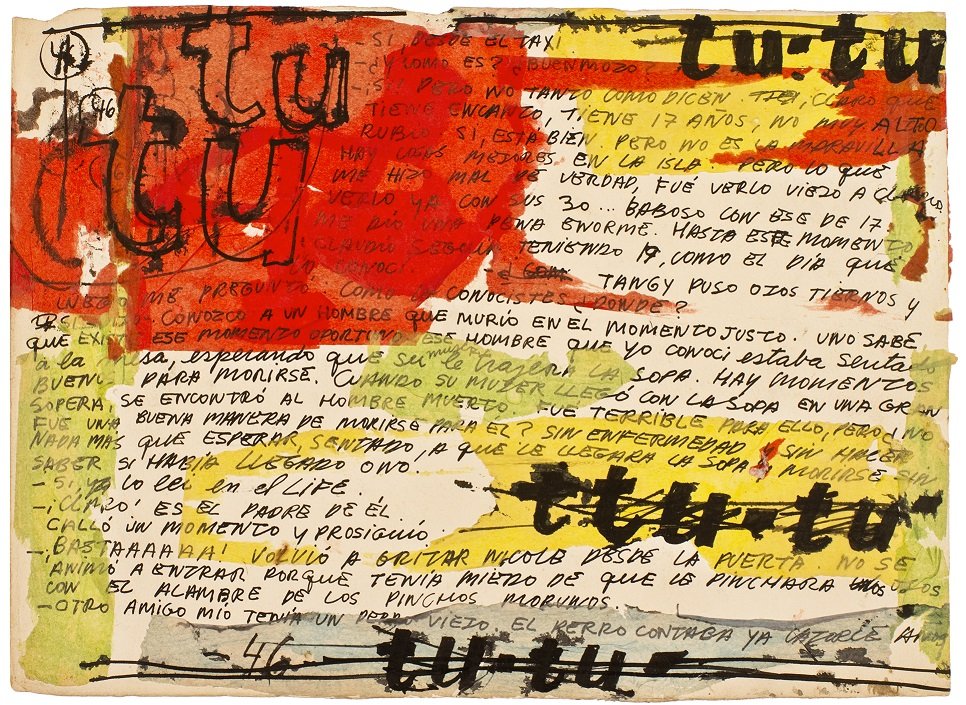 46
tu
tu-tu
46
tu
- SI, DESDE EL TAXI
- ¿Y COMO ES? ¿BUENMOZO?
- ¡SI! PERO NO TANTO COMO DICEN. CLARO QUE
TIENE ENCANTO, TIENE 17 AÑOS, NO MUY ALTO
RUBIO. SI, ESTA BIEN. PERO NO ES LA MARAVILLA
HAY COSAS MEJORES EN LA ISLA. PERO LO QUE
ME HIZO MAL DE VERDAD, FUE VERLO VIEJO A
VERLO YA CON SUS 30... BABOSO CON ESE DE 17
ME DIO UNA PENA ENORME. HASTA ESTE MOMENTO
CLAUDIO SEGUIA TENIENDO 17, COMO EL DÍA QUE
LO CONOCI.
TANGY PUSO OJOS TIERNOS Y
LUEGO ME PREGUNTÓ COMO LO CONOCISTES ¿DONDE?
CONOZCO A UN HOMBRE QUE MURIÓ EN EL MOMENTO JUSTO. UNO SABE,
QUE EXISTE ESE MOMENTO OPORTUNO. ESE HOMBRE QUE YO CONOCI estaba sentado
a la mesa, esperando que su mujer le trajera la SOPA. HAY MOMENTOS
BUENOS PARA MORIRSE. CUANDO SU MUJER LLEGÓ CON LA SOPA EN UNA GRAN
SOPERA, SE ENCONTRÓ AL HOMBRE MUERTO. FUE TERRIBLE PARA ELLO, PERO ¿NO
FUE UNA BUENA MANERA DE MORIRSE PARA EL? SIN ENFERMEDAD, SIN HACER
NADA MAS QUE ESPERAR, SENTADO, A QUE LE LLEGARA LA SOPA Y MORIRSE SIN
SABER SI HABÍA LLEGADO O NO.
- SI, YA lo lei en el LIFE.
- ¡CLARO! ES EL PADRE DE ÉL
CALLÓ UN MOMENTO Y PROSIGUIÓ.
ttu-tu
- BASTAAAAAA! VOLVIÓ A GRITAR NICOLE DESDE LA PUERTA. NO SE
ANIMÓ A ENTRAR PORQUE TENÍA MIEDO DE QUE LE PINCHARA LOS OJOS
CON EL ALAMBRE DE LOS PINCHOS MORUNOS.
- OTRO AMIGO MÍO TENÍA UN PERRO VIEJO. EL PERRO CONTABA YA CATORCE
46
tu-tu-